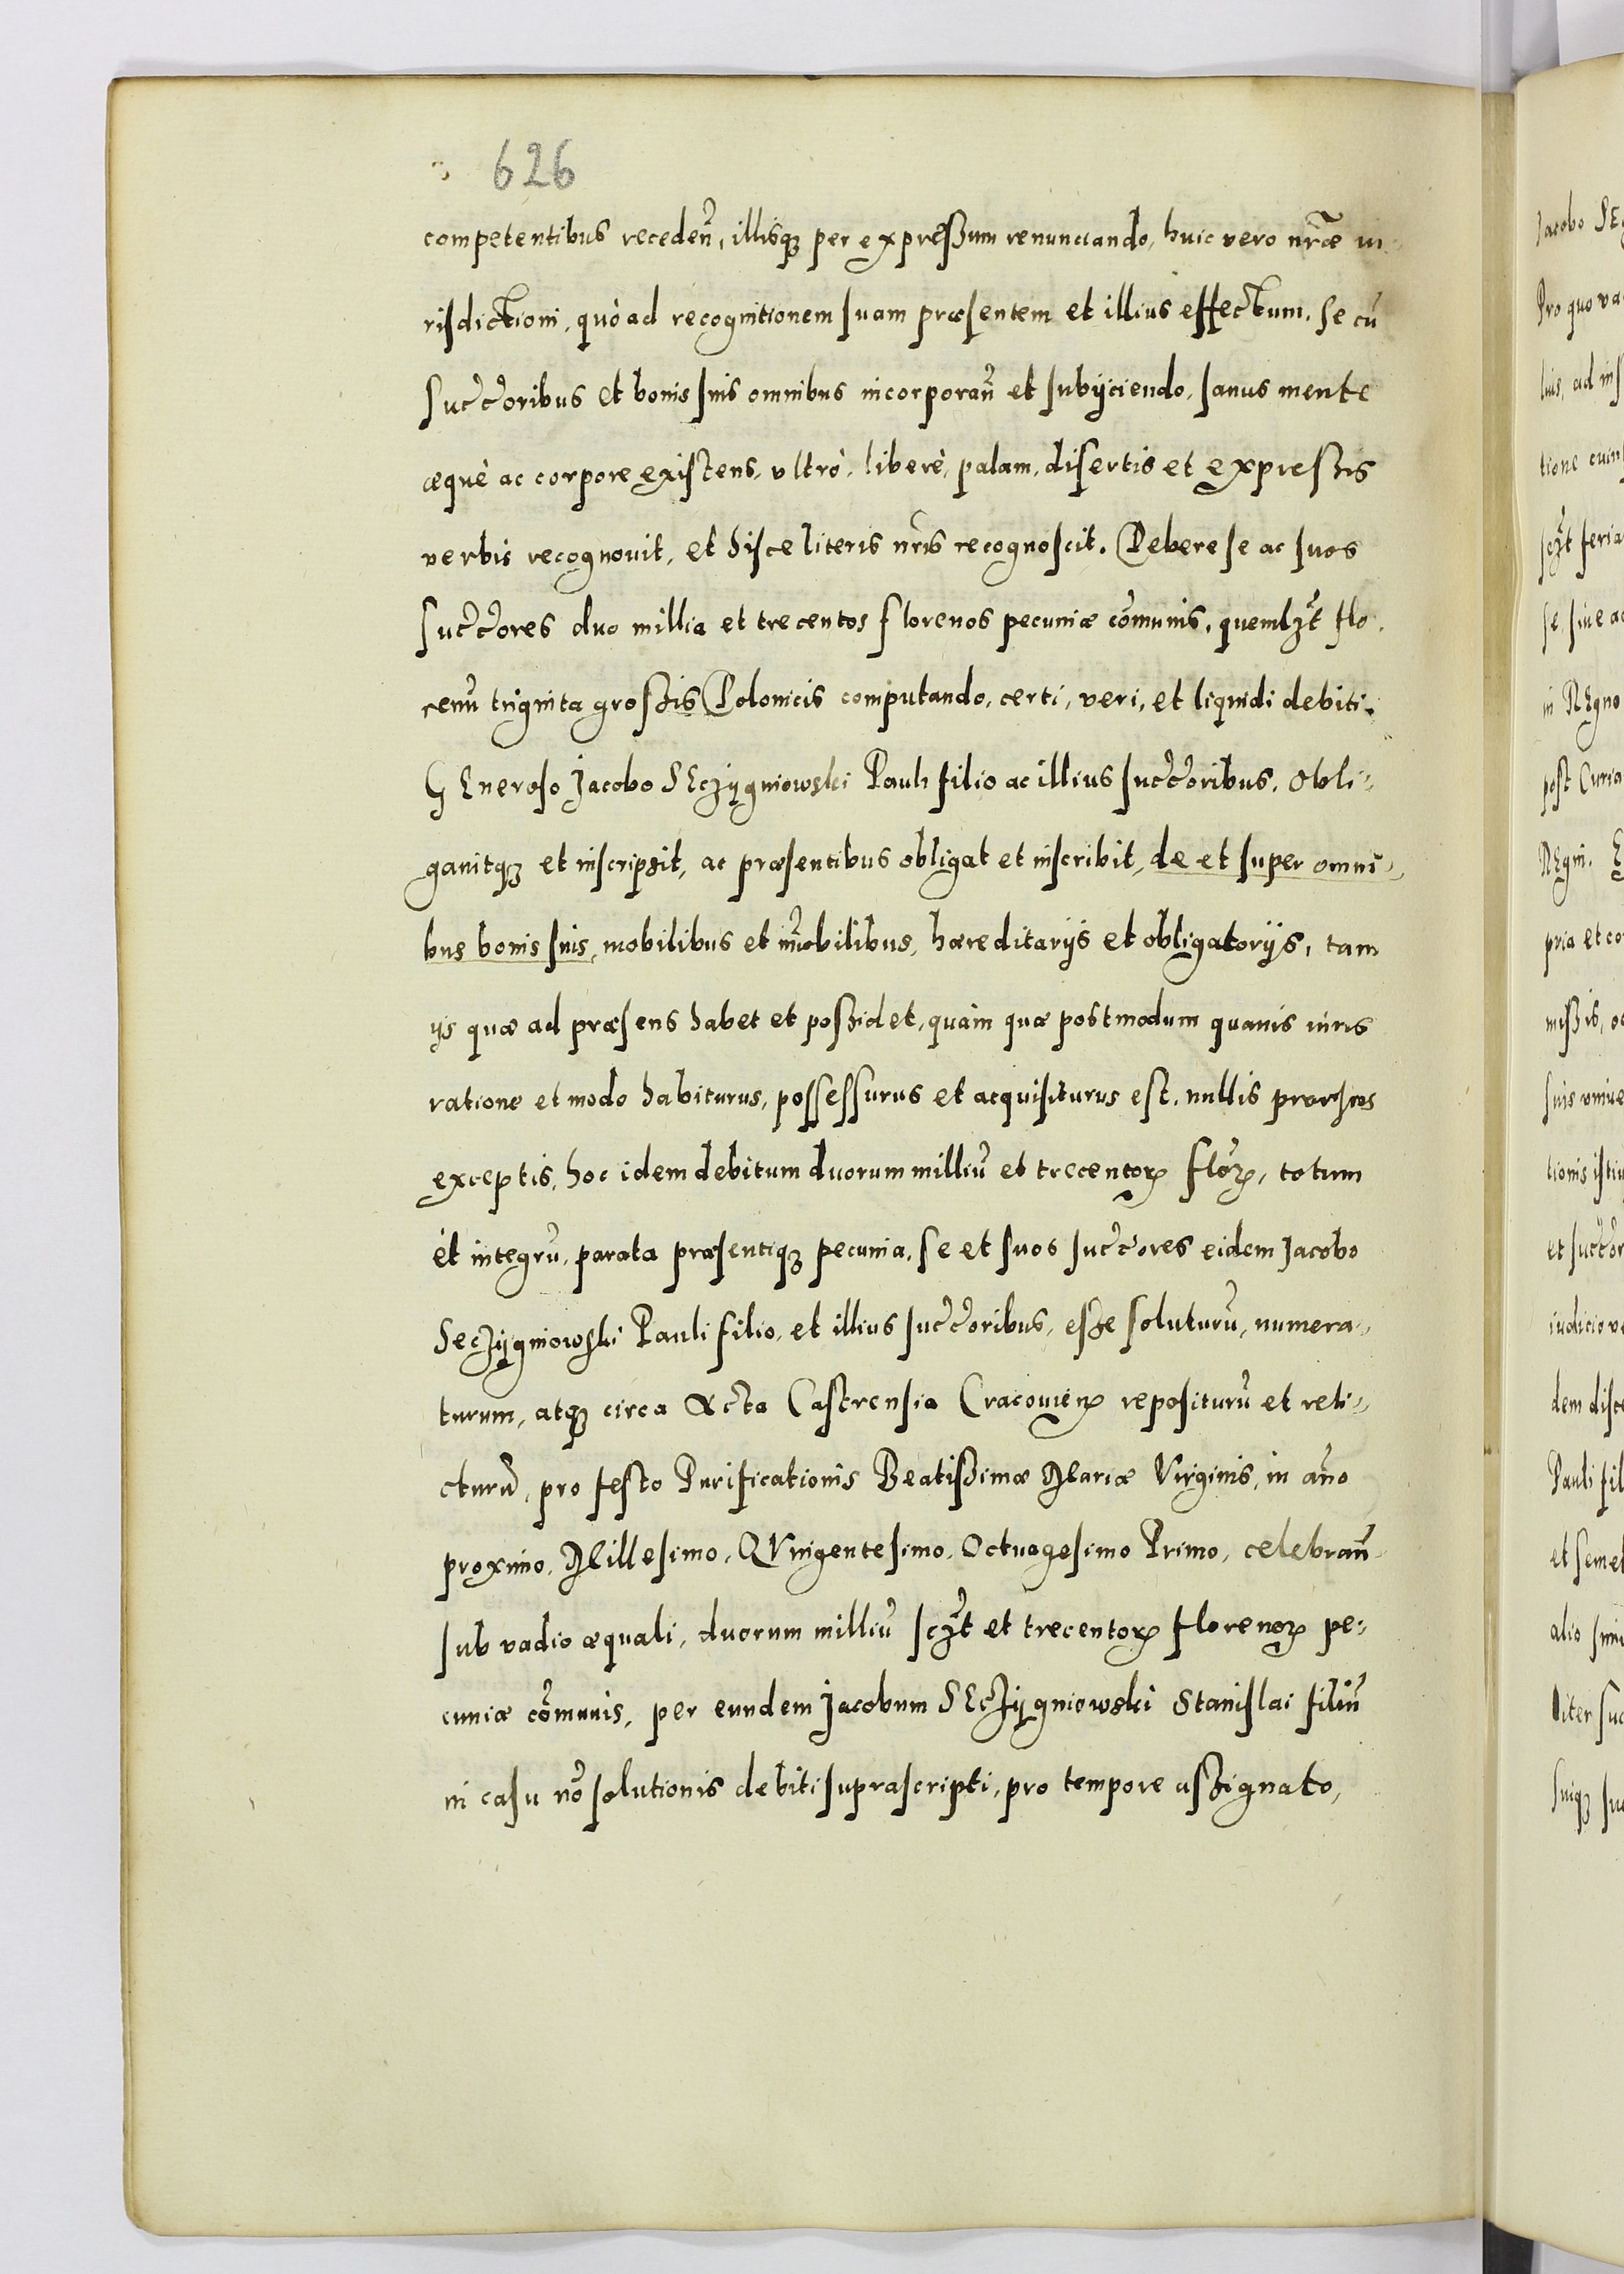 626
competentibus recedeñ, illisqȝ per expreßum renunciando, huic vero nr̃æ iu-
risdictioni, quò ad recognitionem suam præsentem et illius effectum, se cũ
succ̃oribus et bonis suis omnibus incorporañ et subijciendo, sanus mente
æquè ac corpore existens, vltrò, liberè, palam, disertis et expreßis
verbis recognouit, et hisce literis nr̃is recognoscit. Debere se ac suos
succ̃ores duo millia et trecentos florenos pecuniæ com̃unis, quemlȝt flo-
renũ triginta großis Polonicis computando, certi, veri, et liquidi debiti.
GEneroso Jacobo SEcȝijgniowski Pauli filio ac illius succ̃oribus. Obli-
gauitqȝ et inscripsit, ac præsentibus obligat et inscribit, de et super omni-
bus bonis suis, mobilibus et im̃obilibus, hæreditarijs et obligatorijs, tam
ijs quæ ad præsens habet et poßidet, quàm quæ postmodum quauis iuris
ratione et modo habiturus, possessurus et acquisiturus est, nullis prorsus
exceptis, hoc idem debitum duorum milliũ et trecentoꝝ floꝝ, totum
et integrũ, parata præsentiqȝ pecunia, se et suos succ̃ores eidem Jacobo
Secȝijgniowski Pauli filio, et illius succ̃oribus, eße soluturũ, numera-
turum, atqȝ circa Acta Castrensia Cracouieñ repositurũ et reli-
cturũ, pro festo Purificationis Beatißimæ Mariæ Virginis, in año
proximo, Millesimo, QVingentesimo, Octuagesimo Primo, celebrañ
sub vadio æquali, duorum milliũ scȝt et trecentoꝝ florenoꝝ pe-
cuniæ com̃unis, per eundem Jacobum SEcȝijgniowski Stanislai filiũ
in casu nõ solutionis debiti suprascripti, pro tempore aßignato,
Jacobo SE
Pro quo va
tione
in REgno
post Curia
REgni. E
pria et co
mißis, o
suis vniue
tionis istiu
et succ̃or
iudicio ve
dem disce
Pauli fil
et semel
alio simi
liter suc
suiqȝ suc